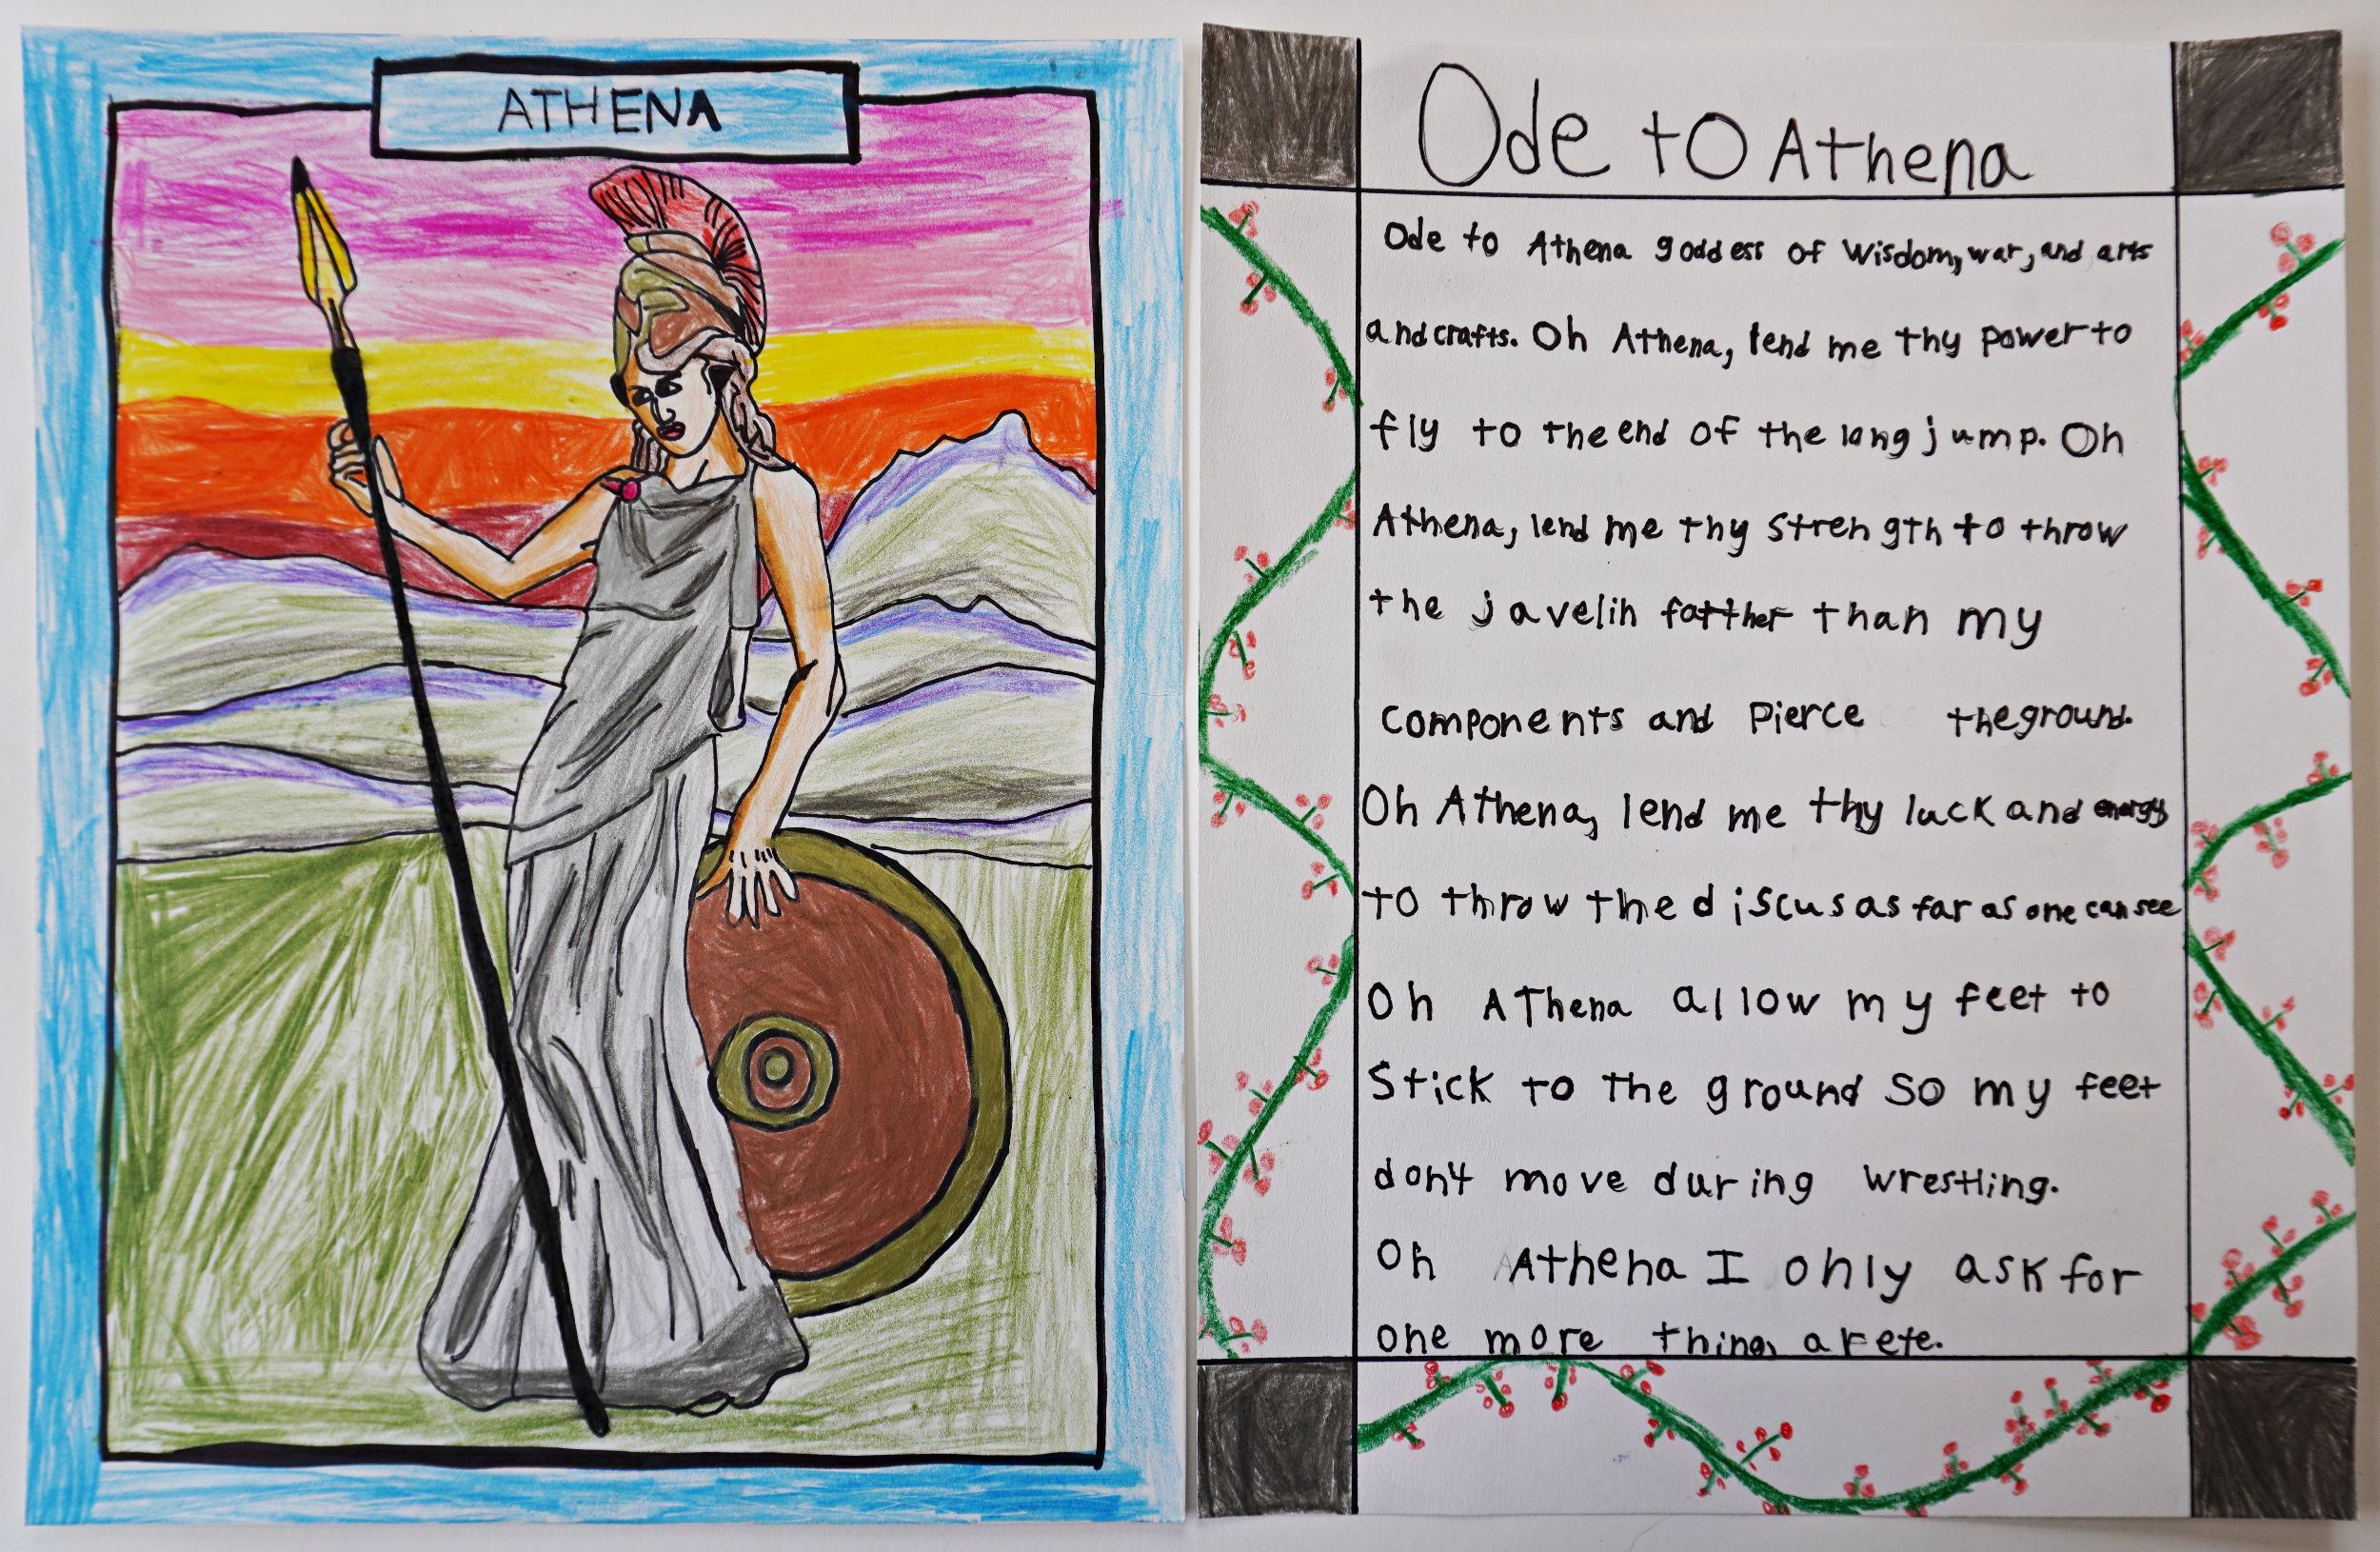 ATHENA
Ode to Athena
Ode to Athena goddess of Wisdom, war, and arts
and crafts. Oh Athena, lend me thy power to
fly to the end of the long jump. Oh
Athena, lend me thy strength to throw
the javelin fatther than my
components and Pierce the ground.
Oh Athena, lend me thy luck and energy
to throw the discus as far as one can see
Oh Athena allow my feet to
Stick to the ground So my feet
don't move during wrestling.
Oh Athena I only ask for
one more thing, arete.